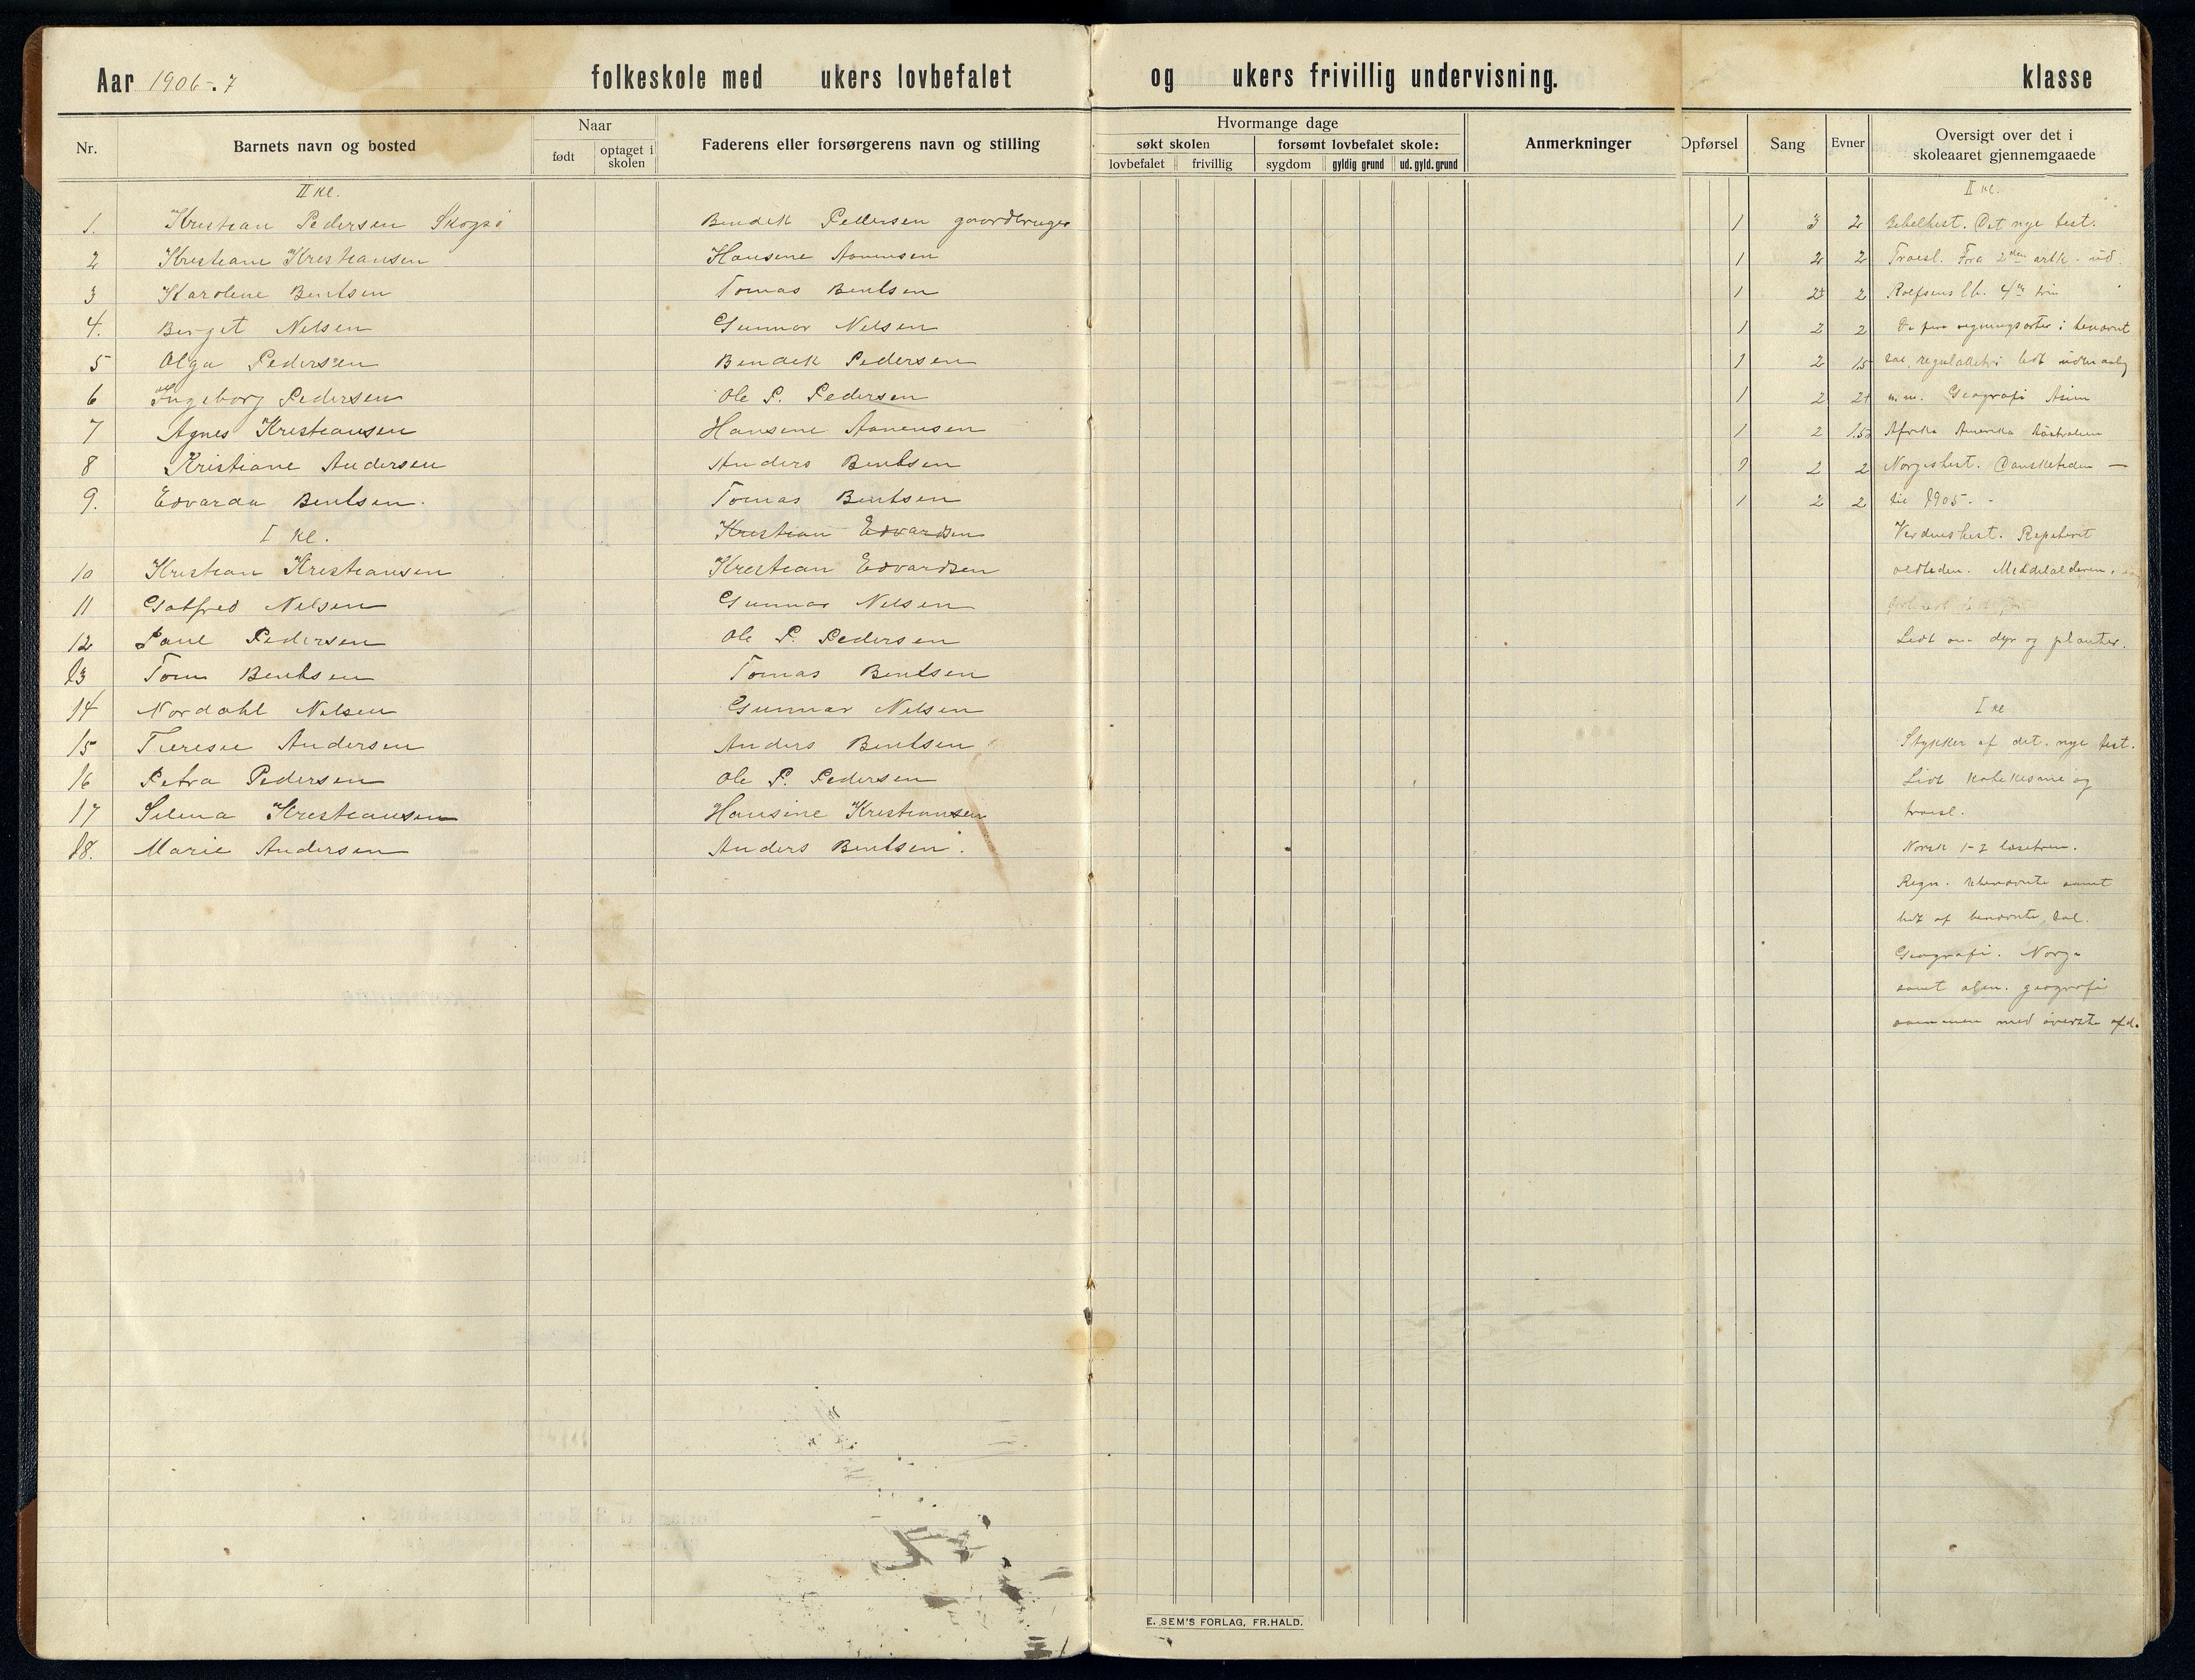 Aar 1906-.7 folkeskole med ukers lovbefalet og ukers frivillig undervisning. klasse
Nr. Barnets navn og bosted Naar født optaget i skolen Faderens eller forsørgerens navn og stilling Hvormange dage søkt skolen lovbefalet frivillig forsømt lovbefalet skole: sygdom gyldig grund ud. gyld. grund Anmerkninger Opførsel Sang Evner Oversigt over det i skoleaaret gjennemgaaede
II kl. II kl.
1. Kristian Pedersen Bendik Pedersen 1 3 2 Bibelhist. Det nye test.
2 Kristiane Kristiansen Hansine Aanensen 1 2 2 Fra 2den artk. ud.
3 Karoline Bentsen Tomas Bentsen 1 2 Rolfsens lb. 4de trin
4. Berget Nelsen Gunnar Nelsen 1 2 2 De fire regningsarter i benævnt
5 Olga Pedersen Bendik Pedersen 1 2 1.5 tal, lidt
6 Ingeborg Pedersen Ole P. Pedersen 1 2 2+ m.m. Geografi Asien
7 Agnes Kristiansen Hansine Aanensen 1 2 1.5 Afrika Amerika
8 Kristiane Andersen Anders Bentsen 2 2 Norgeshist. Dansketiden —
9. Edvarda Bentsen. Tomas Bentsen 1 2 2 til 1905.
I kl. Kristian Edvardsen Verdenshist. Repetert
10 Kristian Kristiansen Kristian Edvardsen oldtiden. Middelalderen.
11 Gotfred Nelsen Gunnar Nelsen
12 Paul Pedersen Ole P. Pedersen Lidt om dyr og planter.
13 Tom Bentsen Tomas Bentsen
14 Nordahl Nelsen Gunnar Nelsen I kl
15 Teresie Andersen Anders Bentsen Stykker af det. nye test.
16 Petra Pedersen Ole P. Pedersen Lidt katekisme og
17 Selma Kristiansen Hansine Kristiansen troesl.
18. Marie Andersen Anders Bentsen. Norsk 1-2 læsetrin.
Regn. ubenævnte samt
lidt af benævnte tal.
Geografi. Norge
samt alm. geografi
sammen med øverste afd.
E. SEM'S FORLAG, FR.HALD.